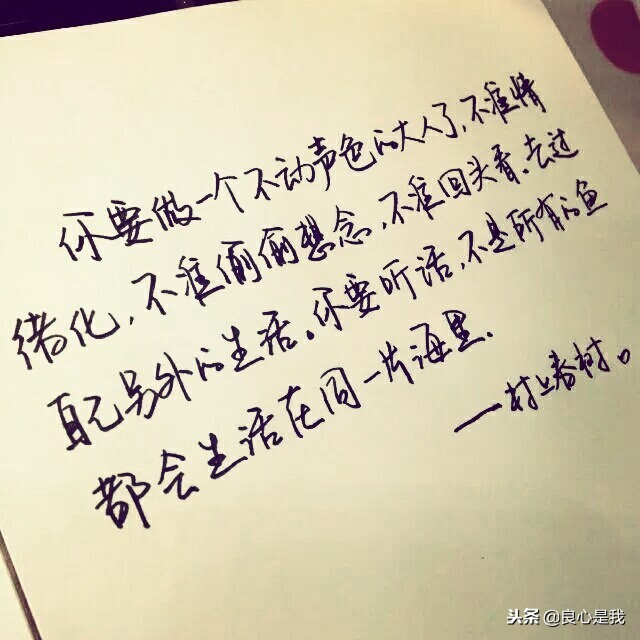 你要做一个不动声色的大人了，不准情
绪化，不准偷偷想念，不准回头看。去过
自己另外的生活。你要听话，不是所有的鱼
都会生活在同一片海里。
——村上春树。
头条 @良心是我